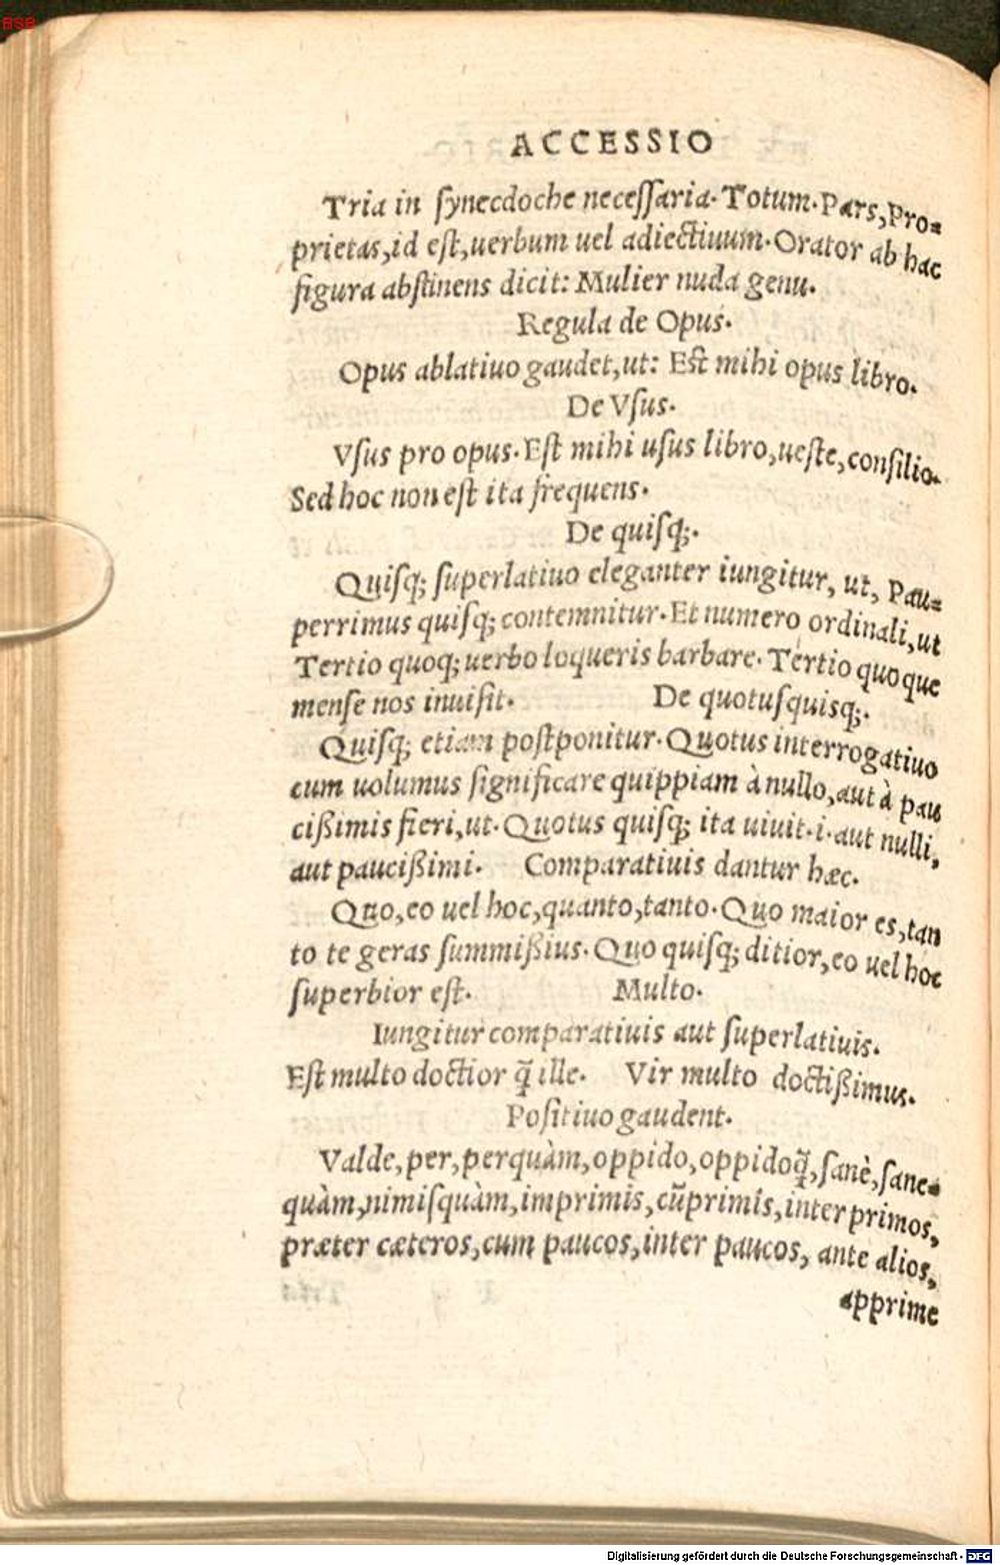 BSB
ACCESSIO
Tria in synecdoche necessaria. Totum. Pars, Pro=
prietas, id est, uerbum uel adiectiuum. Orator ab hac
figura abstinens dicit: Mulier nuda genu.
Regula de Opus.
Opus ablatiuo gaudet, ut: Est mihi opus libro.
De Vsus.
Vsus pro opus. Est mihi usus libro, ueste, consilio.
Sed hoc non est ita frequens.
De quisq;.
Quisq; superlatiuo eleganter iungitur, ut, Pau=
perrimus quisq; contemnitur. Et numero ordinali, ut
Tertio quoq; uerbo loqueris barbare. Tertio quoque
mense nos inuisit. De quotusquisq;.
Quisq; etiam postponitur. Quotus interrogatiuo
cum uolumus significare quippiam à nullo, aut à pau
cißimis fieri, ut. Quotus quisq; ita uiuit. i. aut nulli,
aut paucißimi. Comparatiuis dantur hæc.
Quo, eo uel hoc, quanto, tanto. Quo maior es, tan
to te geras summißius. Quo quisq; ditior, eo uel hoc
superbior est. Multo.
Iungitur comparatiuis aut superlatiuis.
Est multo doctior q̃ ille. Vir multo doctißimus.
Positiuo gaudent.
Valde, per, perquàm, oppido, oppidoq̃, sanè, sane=
quàm, nimisquàm, imprimis, cũprimis, inter primos,
præter cæteros, cum paucos, inter paucos, ante alios,
apprime
Digitalisierung gefördert durch die Deutsche Forschungsgemeinschaft - DFG